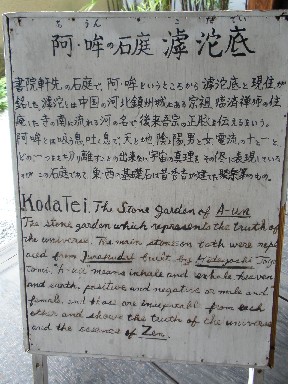 あ うん こ だ てい
阿・吽の石庭 滹沱底
書院軒先の石庭で、阿・吽というところから滹沱底と現住が
銘した 滹沱とは中国の河北鎮州城にある宗祖 臨済禅師の住
庵した寺の南に流れる河の名で後来吾宗の正脈を伝えるという。
阿・吽とは吸う息吐く息で、天と地 陰陽 男と女 電流の+と-と
どの一つをとり離すことの出来ない宇宙の真理を その侭に表現している
のが この石庭であって 東・西の基礎石は昔秀吉が建てた聚楽第のもの。
KodaTei. The Stone Garden of A-un
The stone garden which represents the truth of
the universe. The main stones on both were rep
aced from Jurakudai built by Hideyoshi Toyo
tomi. A-un means inhale and exhale, heaven
and earth, positive and negative or male and
female, and those are inseparable from each
other and shows the truth of the universe
and the essence of Zen.